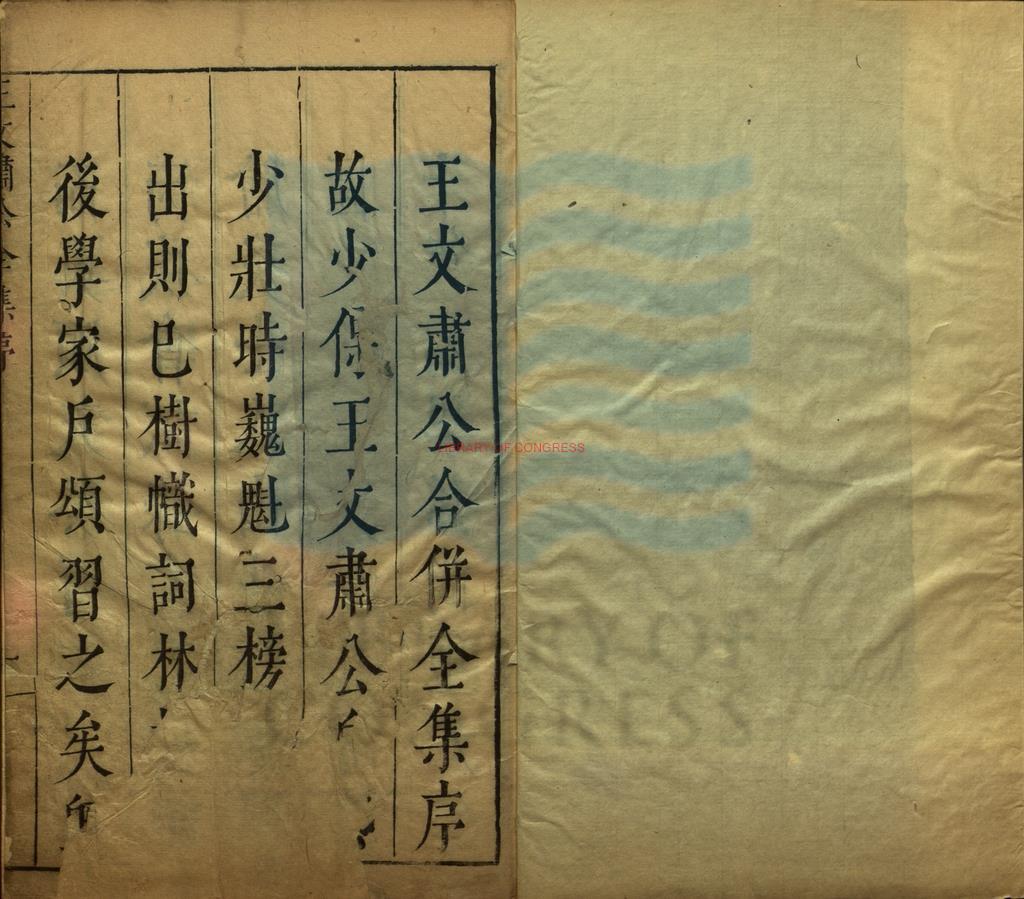 王文肅公合併全集序
故少保王文肅公
少壯時巍魁三榜
出則已樹幟詞林
後學家戶頌習之矣
王文肅公全集序
LIBRARY OF CONGRESS